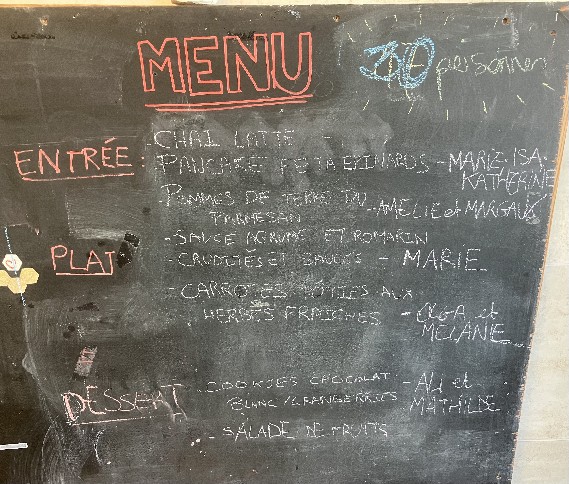 MENU
personnes
- CHAI LATTE -
ENTRÉE : PANCAKE FETA EPINARDS - MARIE-ISA-
KATHERINE
POMMES DE TERRE DU
PARMESAN - AMELIE et MARGAUX
- SAUCE AGRUME ET ROMARIN
PLAT - CRUDITÉS ET SAUCES - MARIE
- CARROTES ROTIES AUX
HERBES FRAICHES - OLGA et
MELANIE
DESSERT - COOKIES CHOCOLAT - ALI et
BLANC / CRANBERRIES MATHILDE
- SALADE DE FRUITS